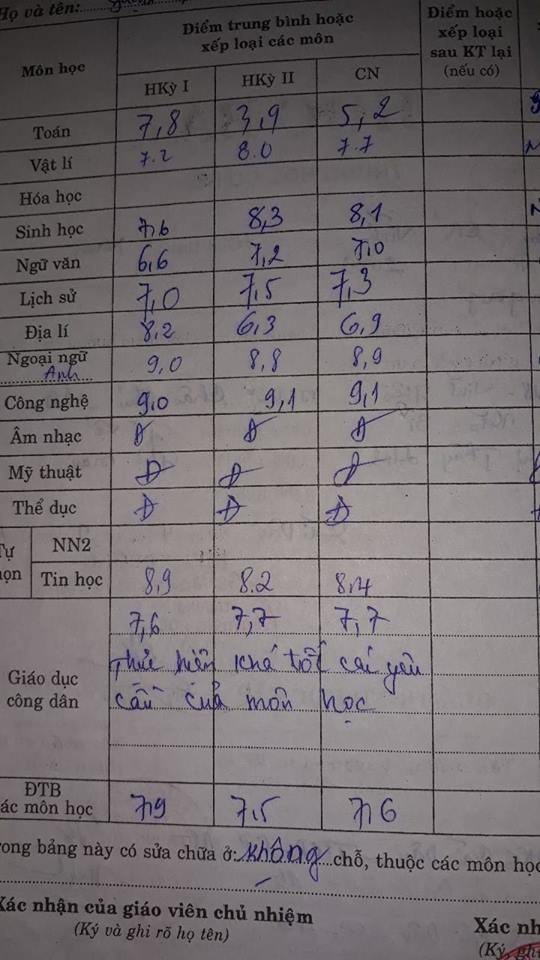 Họ và tên:
Môn học
Điểm trung bình hoặc
xếp loại các môn
Điểm hoặc
xếp loại
sau KT lại
(nếu có)
HKỳ I HKỳ II CN
Toán 7,8 3,9 5,2
Vật lí 7.2 8.0 7.7
Hóa học
Sinh học 7,6 8,3 8,1
Ngữ văn 6,6 7,2 7,0
Lịch sử 7,0 7,5 7,3
Địa lí 8,2 6,3 6,9
Ngoại ngữ
Anh 9,0 8,8 8,9
Công nghệ 9,0 9,1 9,1
Âm nhạc Đ Đ Đ
Mỹ thuật Đ Đ Đ
Thể dục Đ Đ Đ
Tự
họn
NN2
Tin học 8,9 8.2 8,4
Giáo dục
công dân
7,6 7,7 7,7
Thực hiện khá tốt các yêu
cầu của môn học
ĐTB
các môn học 7,9 7,5 7,6
rong bảng này có sửa chữa ở: không chỗ, thuộc các môn học
Xác nhận của giáo viên chủ nhiệm
(Ký và ghi rõ họ tên)
Xác nh
(Ký, ghi